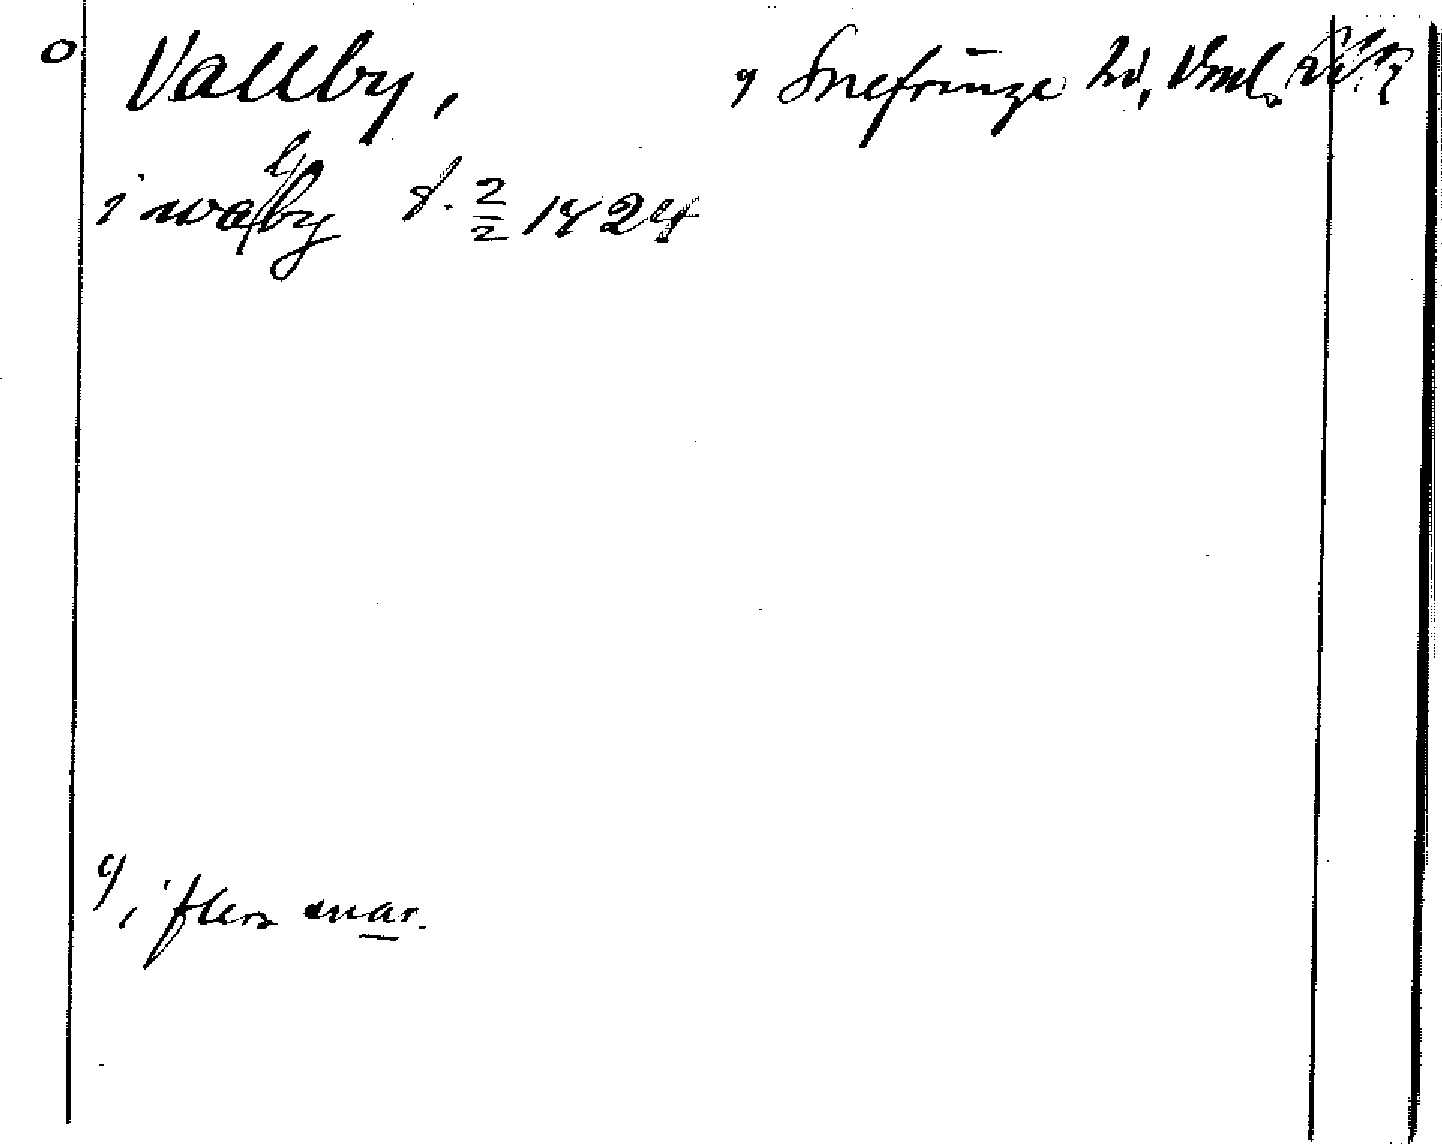 o Vallby, 9 Snefringe hd, Vml.
i walby d. 2/2 1424
9, i flers